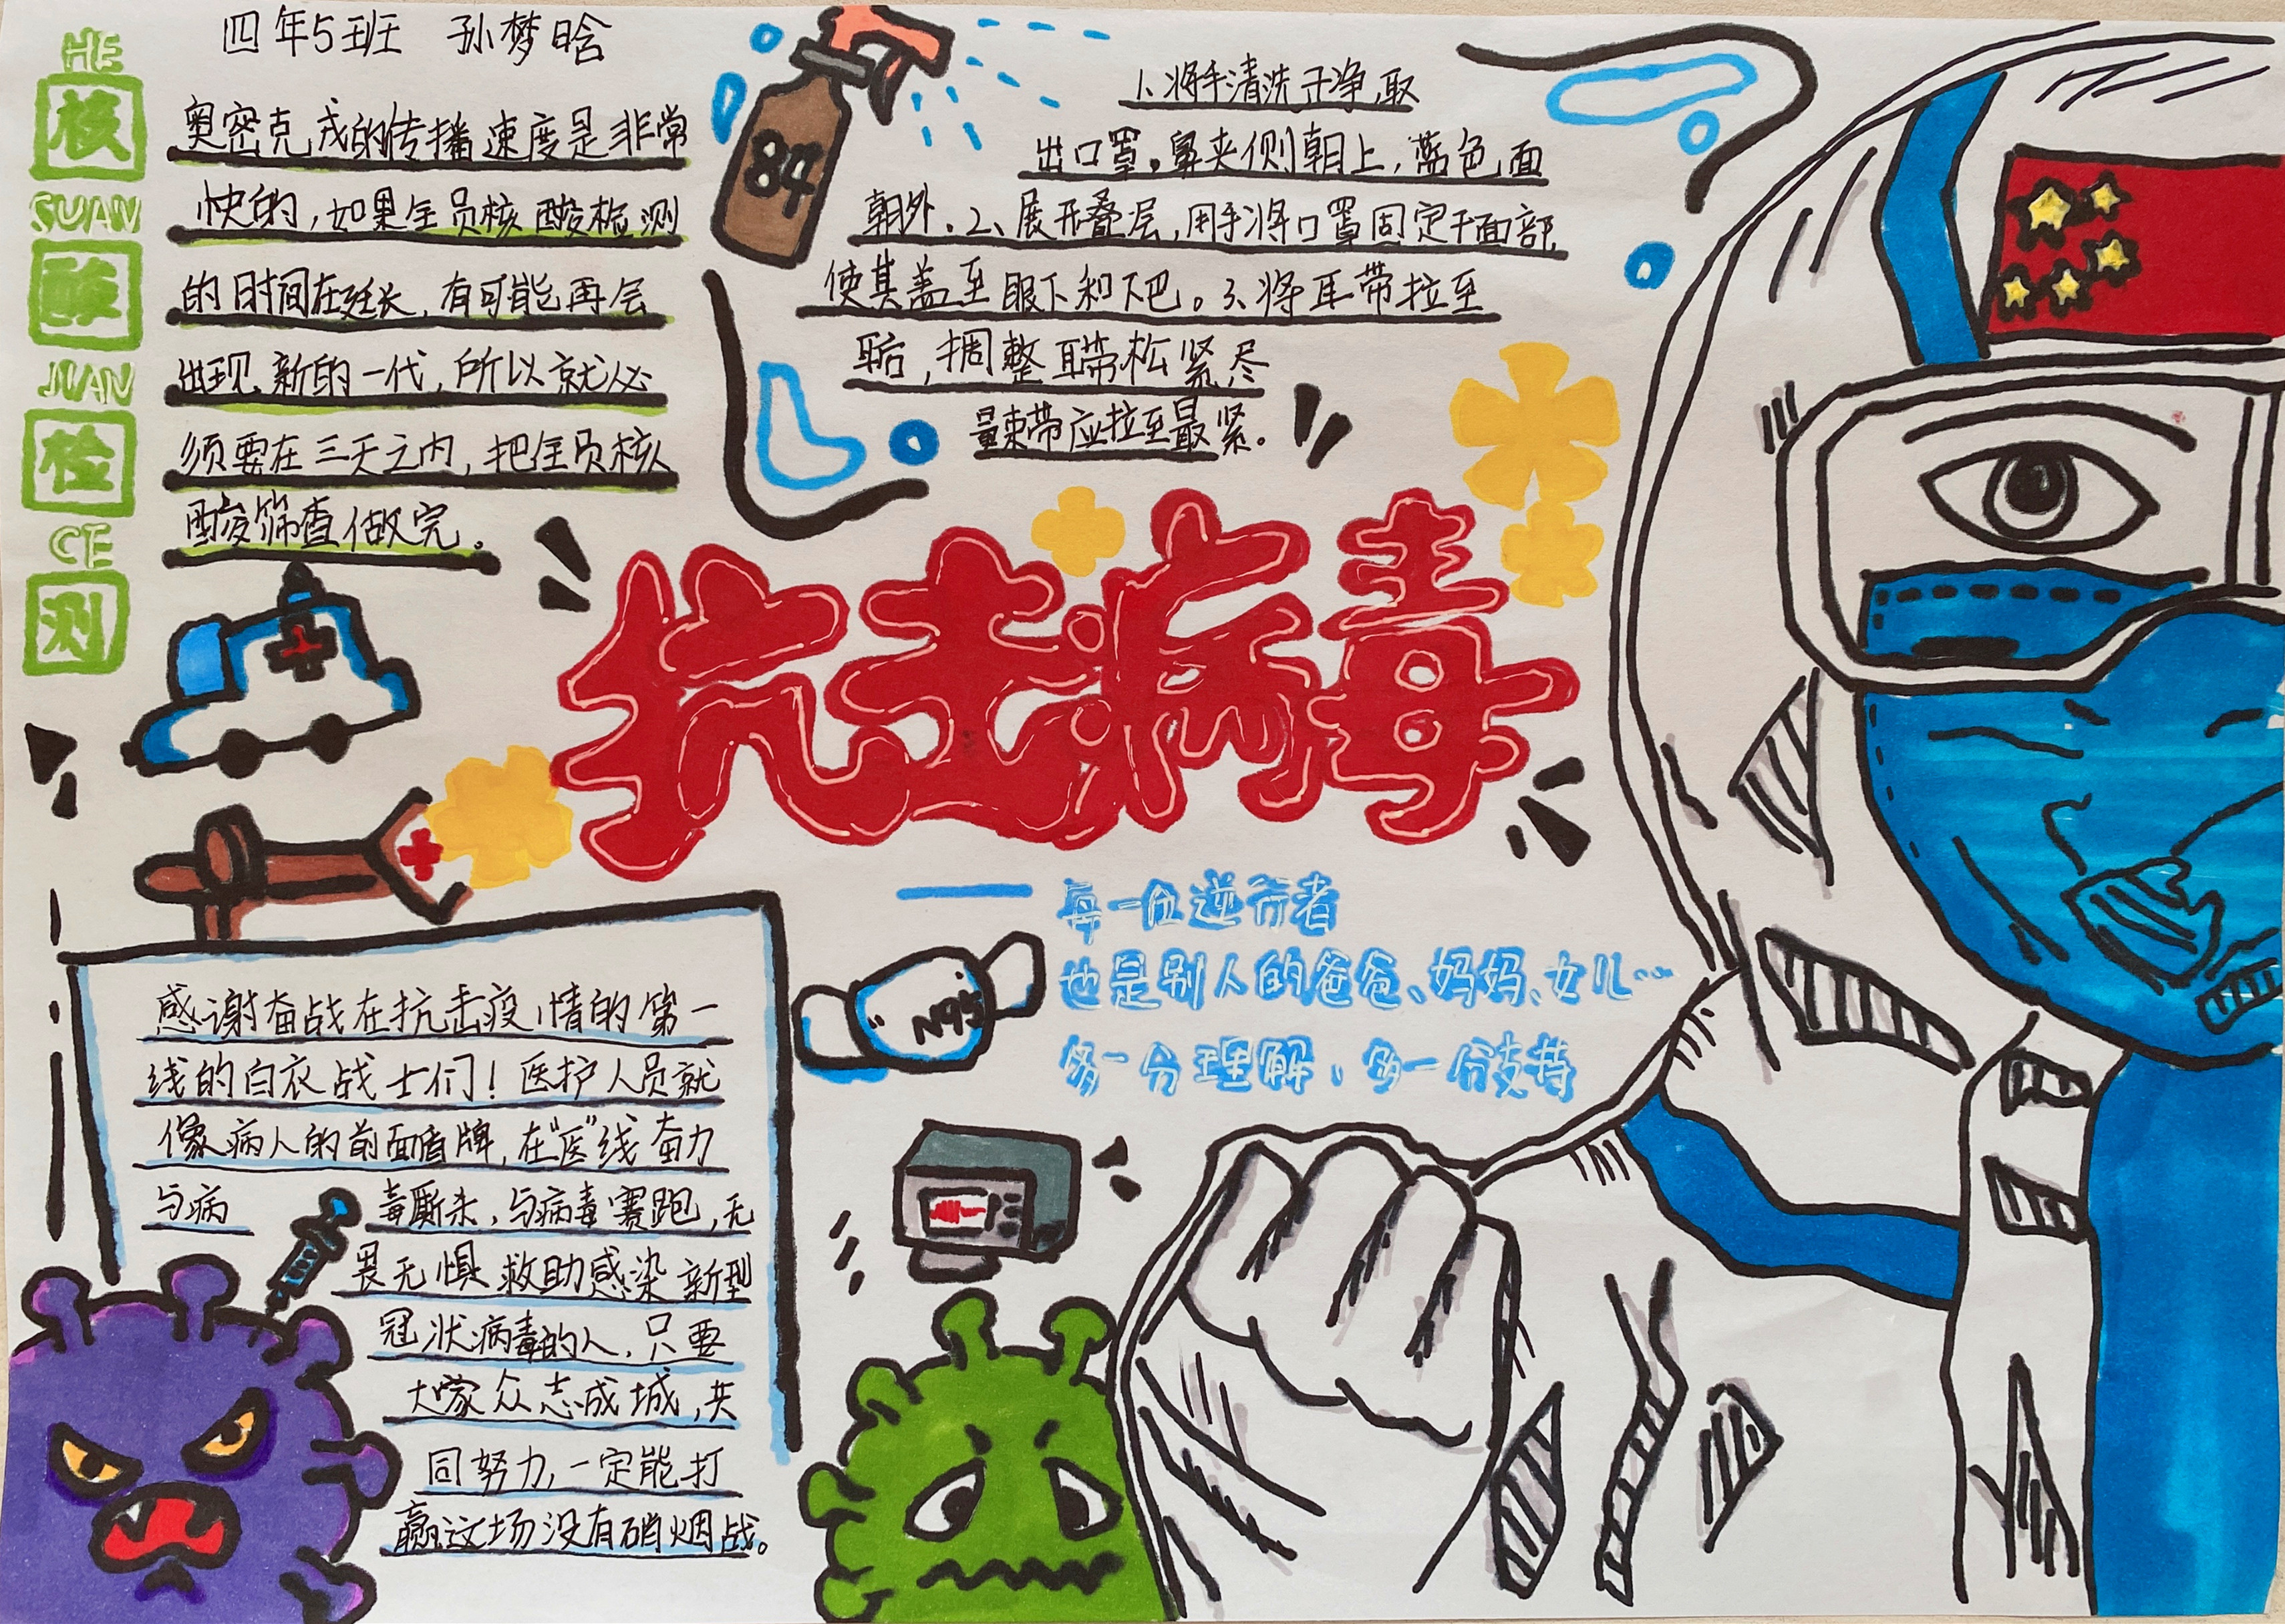 四年5班 孙梦晗
HE
核
SUAN
酸
JIAN
检
CE
测
奥密克戎的传播速度是非常
快的，如果全员核酸检测
的时间在延长，有可能再会
出现新的一代，所以就必
须要在三天之内，把全员核
酸筛查做完。
84
1、将手清洗干净，取
出口罩。鼻夹侧朝上，蓝色面
朝外、2、展开叠层，用手将口罩固定于面部，
使其盖至眼下和下巴。3、将耳带拉至
耳后，调整耳带松紧尽
量束带应拉至最紧。
抗击病毒
——每一位逆行者
也是别人的爸爸、妈妈、女儿…
多一分理解，多一份支持
N95
感谢奋战在抗击疫情的第一
线的白衣战士们！医护人员就
像病人的前面盾牌，在“医”线奋力
与病毒厮杀，与病毒赛跑，无
畏无惧救助感染新型
冠状病毒的人，只要
大家众志成城，共
同努力，一定能打
赢这场没有硝烟战。